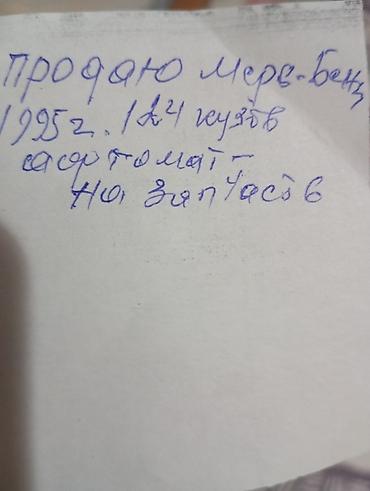 продаю мерс-Бенц
1995г. 124 кузов
афтомат -
на запчасть